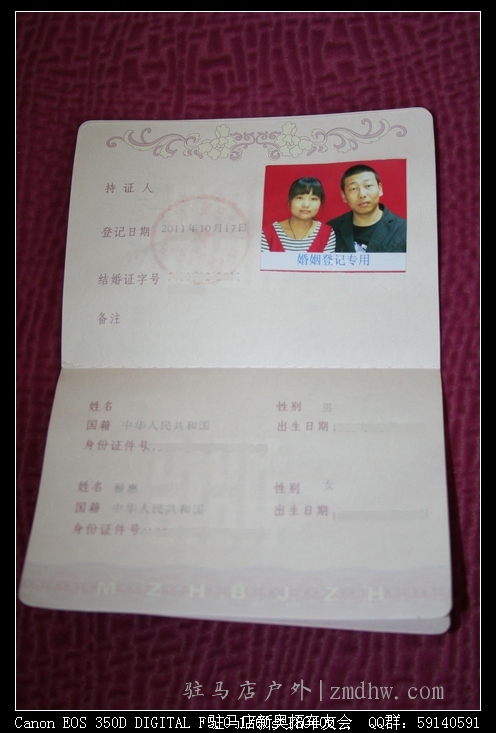 持证人
登记日期 2011年10月17日
婚姻登记专用
结婚证字号
备注
姓名 性别 男
国籍 中华人民共和国 出生日期
身份证件号
姓名 性别 女
国籍 中华人民共和国 出生日期
身份证件号
MZHBJZH
驻马店户外|zmdhw.com
Canon EOS 350D DIGITAL
驻马店新奥拓车友会 QQ群：59140591